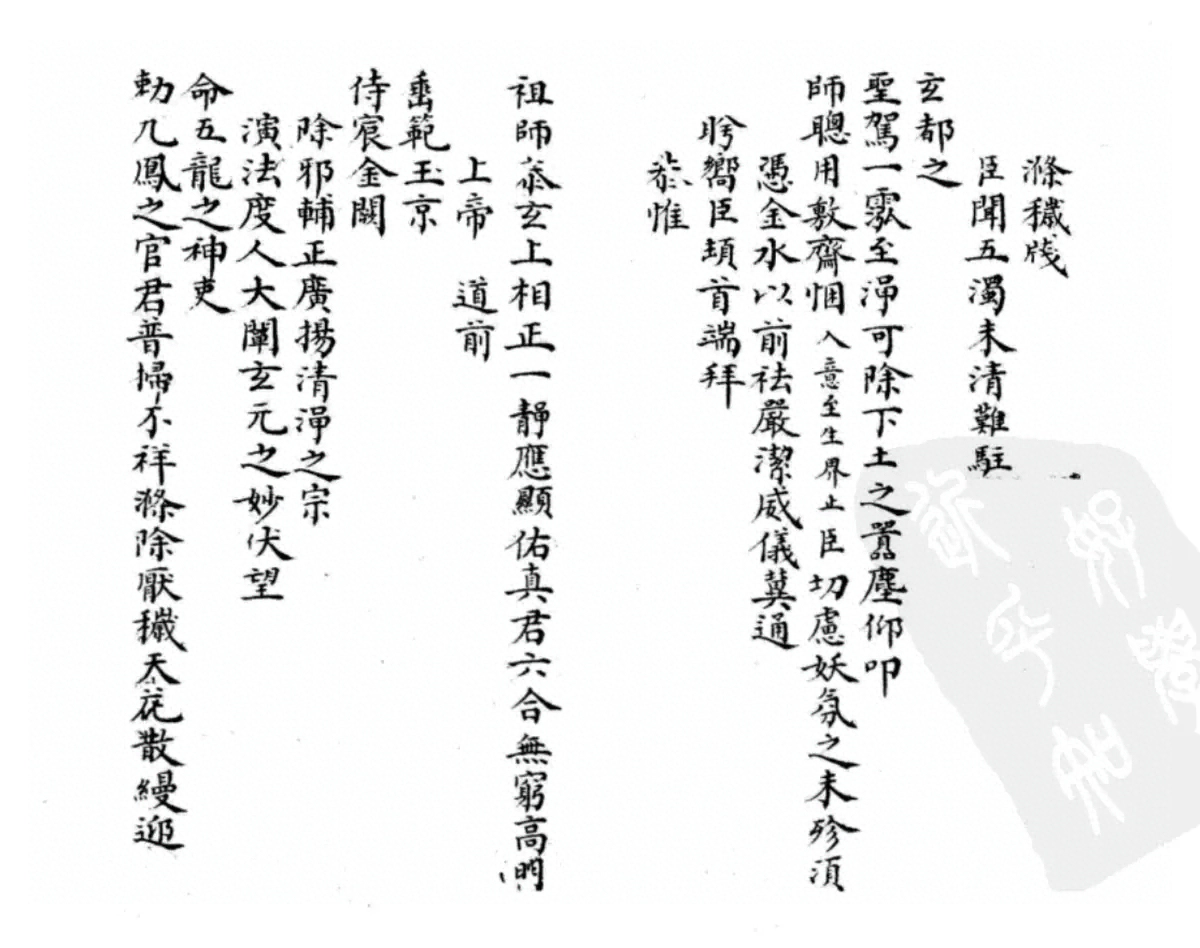 滌穢牋
臣聞五濁未清難駐
玄都之
聖駕一霐至淨可除下土之囂塵仰叩
師聰用敷齋悃入意至生界止臣切慮妖氛之未殄須
憑金水以前袪嚴潔威儀冀通
肸嚮臣頓首端拜
恭惟
祖師泰玄上相正一靜應顯佑真君六合無窮高明
上帝 道前
垂範玉京
侍宸金闕
除邪輔正廣揚清淨之宗
演法度人大闡玄元之妙伏望
命五龍之神吏
勅九鳳之官君普掃不祥滌除厭穢天花散縵迎